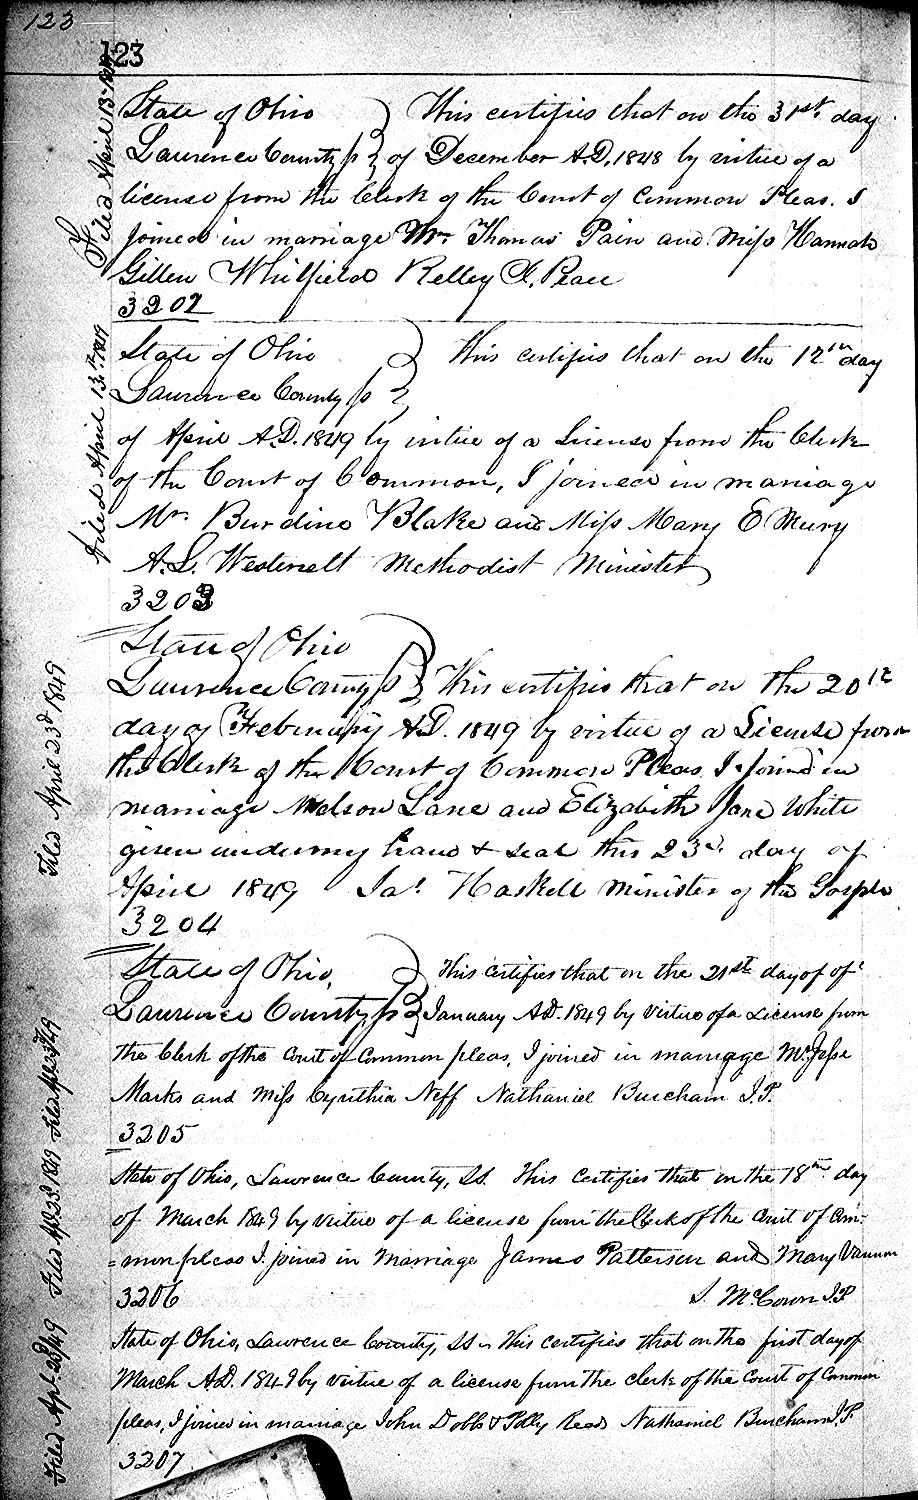 123
123
Filed April 13th 1849
State of Ohio } This certifies that on the 31st day
Lawrence County ss } of December A.D. 1848 by virtue of a
license from the Clerk of the Court of Common Pleas. I
joined in marriage Mr Thomas Pain and Miss Hannah
Gillen Whitfield Kelley J. Peace
3202
Filed April 13th 1849
State of Ohio } This certifies that on the 12th day
Lawrence County ss }
of April A.D. 1849 by virtue of a License from the Clerk
of the Court of Common, I joined in marriage
Mr. Burdino Blake and Miss Mary E Mury
A. L. Westervelt Methodist Minister
3203
Filed April 23d 1849
State of Ohio
Lawrence County ss } This certifies that on the 20th
day of February A.D. 1849 by virtue of a License from
the Clerk of the Court of Common Pleas I joined in
marriage Nelson Lane and Elizabeth Jane White
given under my hand & seal this 23d. day of
April 1849 Jas. Haskell Minister of the Gospel
3204
State of Ohio, } This certifies that on the 21st day of of
Lawrence County, ss } January A.D. 1849 by virtue of a License from
the Clerk of the Court of Common pleas, I joined in marriage Mr. Jesse
Marks and Miss Cynthia Neff Nathaniel Burcham J.P.
3205
Filed Apl 23 1849
State of Ohio, Lawrence County, SS. This certifies that on the 18th day
of March 1849 by virtue of a license from the Clerk of the Court of Com-
=mon pleas I joined in Marriage James Patterson and Mary Vannon
3206 S. McCown J.P
Filed Apl. 23d 1849
State of Ohio, Lawrence County, SS. This certifies that on the first day of
March A.D. 1849 by virtue of a license from the clerk of the Court of Common
pleas, I joined in marriage John Dobbs & Polly Read Nathaniel Burcham J.P.
3207